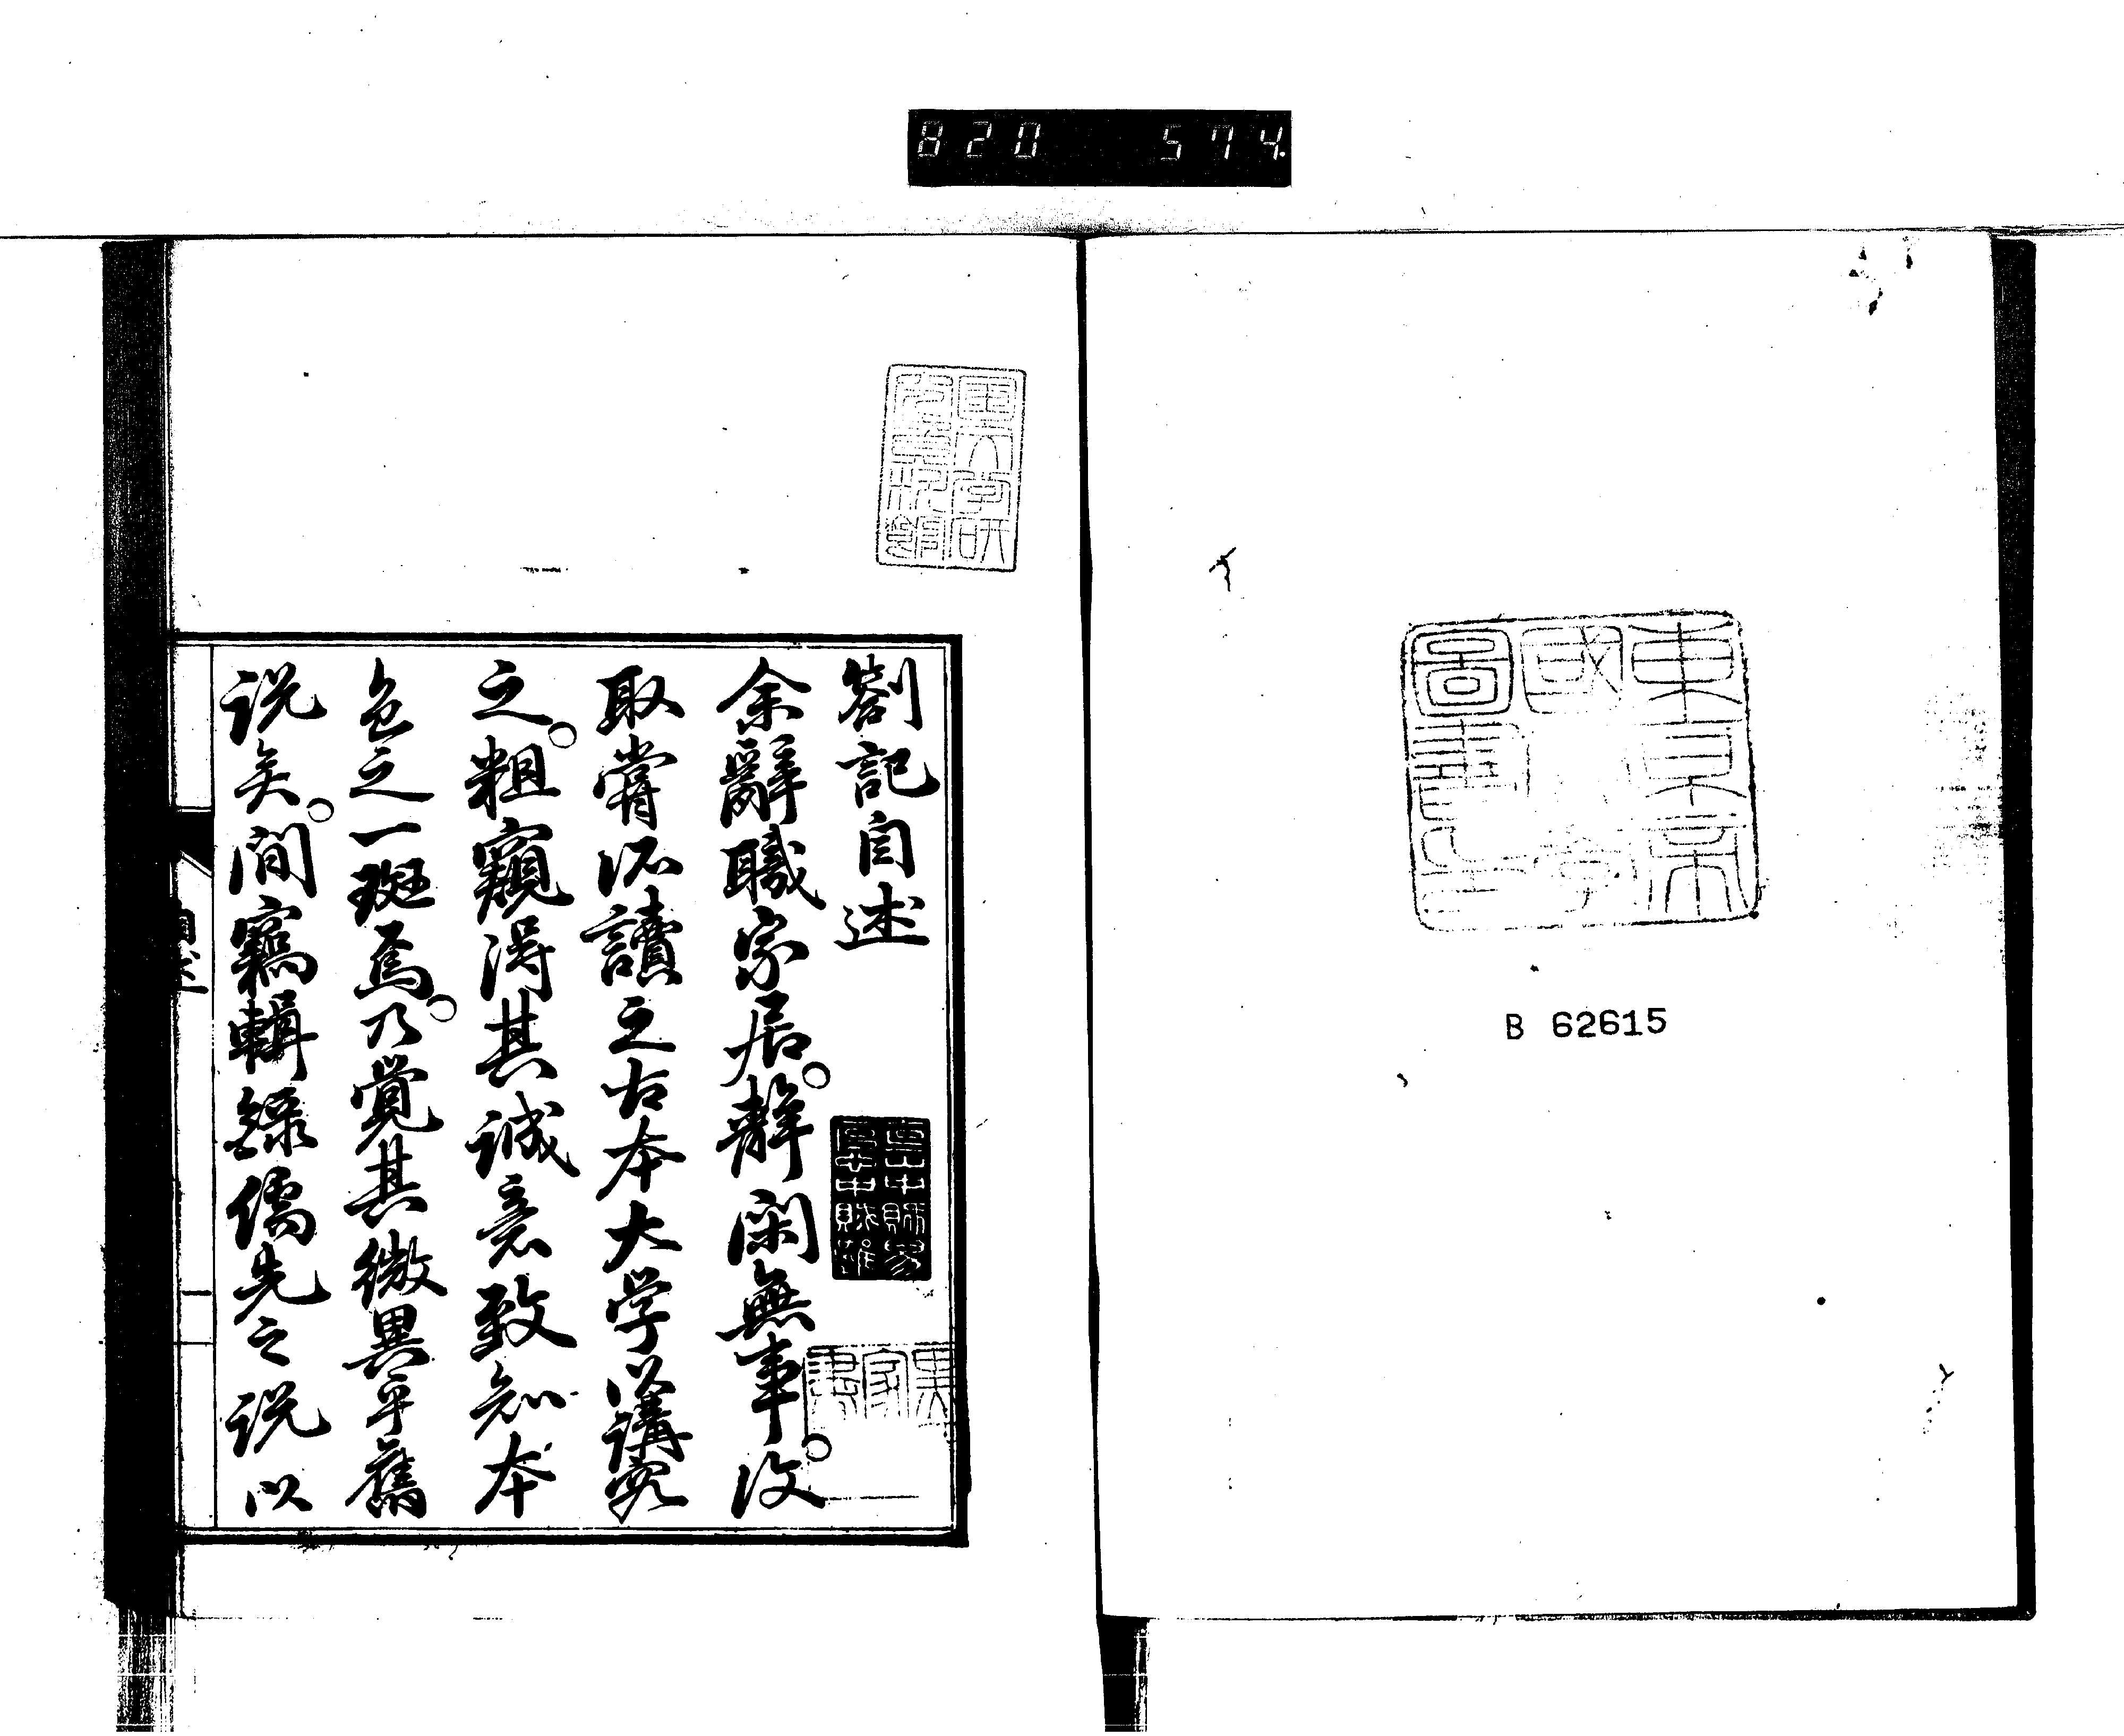 820 574.
東京帝
國
學
圖書
B 62615
劄記自述
余辭職家居。靜閑無事。復
取嘗所讀之古本大学以講究
之。粗窺得其誠意致知本
色之一斑焉。乃覚其微異乎舊
説矣。間竊輯録儒先之説以